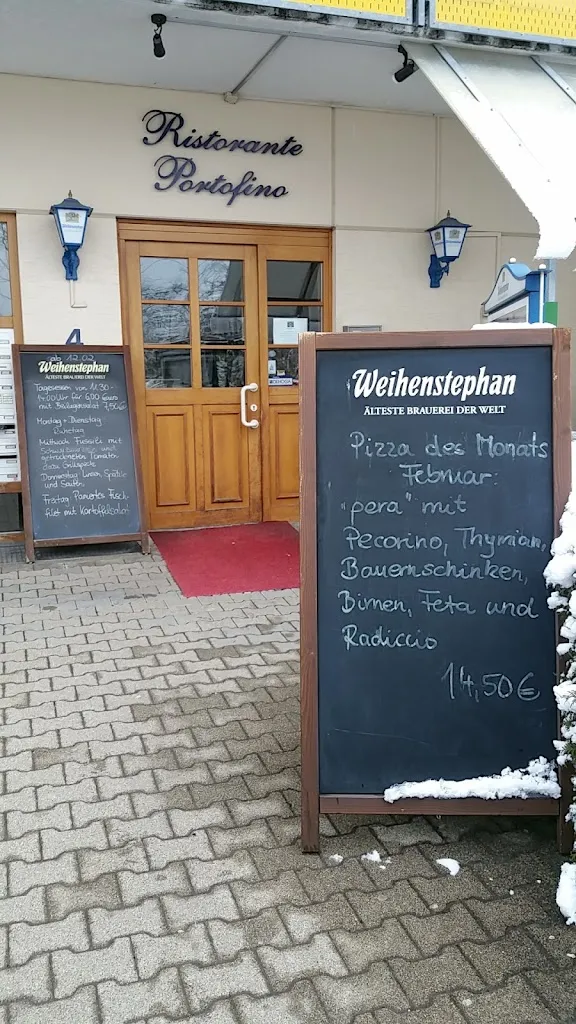 Ristorante
Portofino
4
ab 12.02.
Weihenstephan
ÄLTESTE BRAUEREI DER WELT
Tagesessen von 11.30-
14.00 Uhr für 6,00 Euro
mit Beilagensalat 7,50€
Montag + Dienstag
Ruhetag
Mittwoch: Fusilli mit
und
getrockneten Tomaten
dazu
Donnerstag: Linsen, Spätzle
und Saiten
Freitag: Paniertes Fisch-
filet mit Kartoffelsalat
Weihenstephan
ÄLTESTE BRAUEREI DER WELT
Pizza des Monats
Februar:
"pera" mit
Pecorino, Thymian,
Bauernschinken,
Birnen, Feta und
Radiccio
14,50€